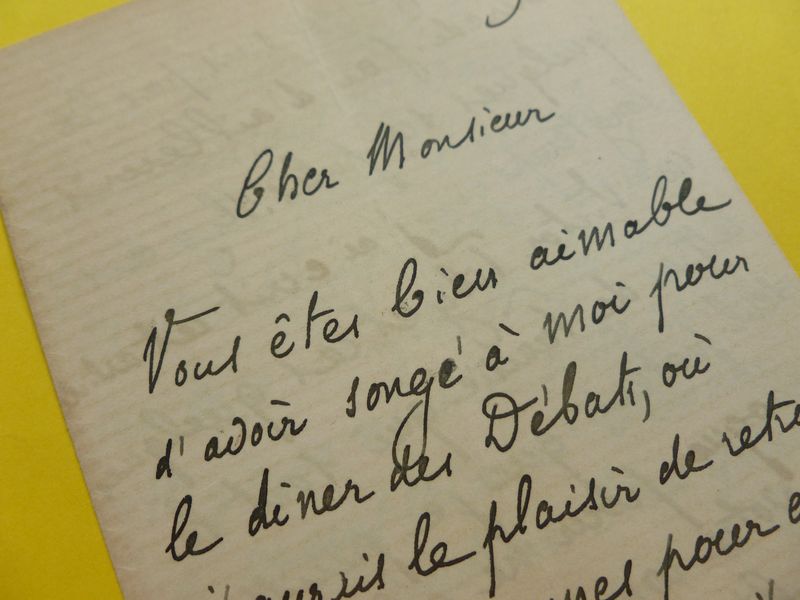 Cher Monsieur
Vous êtes bien aimable
d'avoir songé à moi pour
le dîner des Débats, où
j'aurais le plaisir de retro
pour